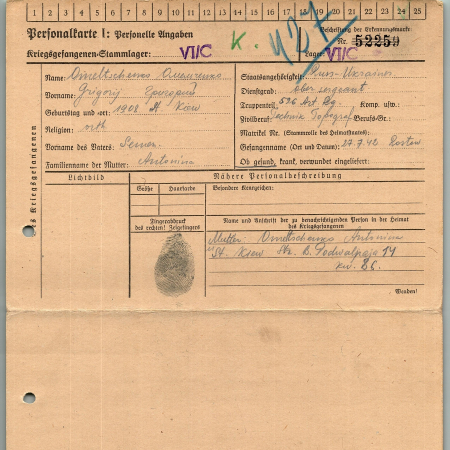 1 2 3 4 5 6 7 8 9 10 11 12 13 14 15 16 17 18 19 20 21 22 23 24 25
Personalkarte I: Personelle Angaben
Kriegsgefangenen-Stammlager: VI/C K. 427
Beschriftung der Erkennungsmarke
Nr. 52259
Lager: VI/C
des Kriegsgefangenen
Name: Omeltschenko Омельченко
Vorname: Grigorij Григорий
Geburtstag und -ort: 1908 Kiew
Religion: orth
Vorname des Vaters: Semen
Familienname der Mutter: Antonina
Staatsangehörigkeit: Russ-Ukrainer
Dienstgrad: ober sergeant
Truppenteil: 596 Art Rg. Komp. usw.:
Zivilberuf: Technik Topograf Berufs-Gr.:
Matrikel Nr. (Stammrolle des Heimatstaates):
Gefangennahme (Ort und Datum): 27.7.42 Rostow
Ob gesund, krank, verwundet eingeliefert:
Lichtbild
Nähere Personalbeschreibung
Größe Haarfarbe Besondere Kennzeichen:
Fingerabdruck
des rechten! Zeigefingers
Name und Anschrift der zu benachrichtigenden Person in der Heimat
des Kriegsgefangenen
Mutter Omeltschenko Antonina
St. Kiew Str. B. Podwalnaja 14
kw. 86.
Wenden!